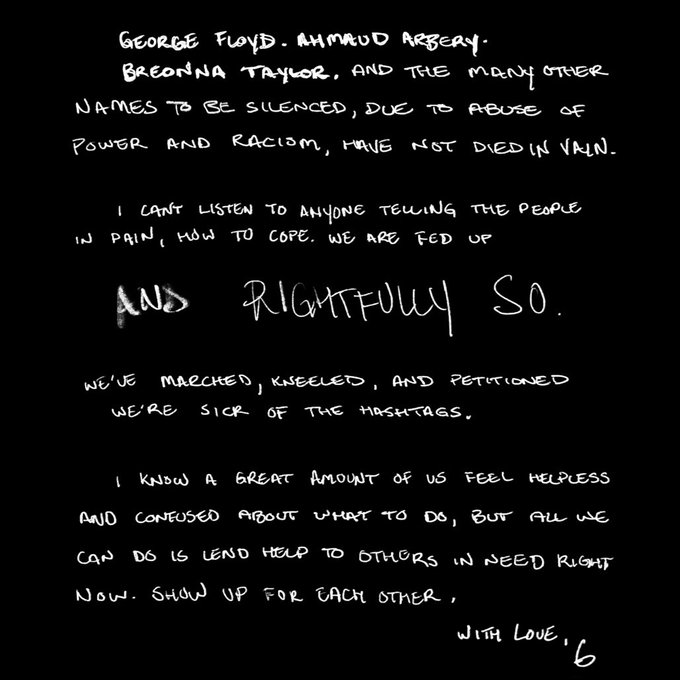 GEORGE FLOYD. AHMAUD ARBERY.
BREONNA TAYLOR. AND THE MANY OTHER
NAMES TO BE SILENCED, DUE TO ABUSE OF
POWER AND RACISM, HAVE NOT DIED IN VAIN.
I CANT LISTEN TO ANYONE TELLING THE PEOPLE
IN PAIN, HOW TO COPE. WE ARE FED UP
AND RIGHTFULLY SO.
WE'VE MARCHED, KNEELED, AND PETITIONED
WE'RE SICK OF THE HASHTAGS.
I KNOW A GREAT AMOUNT OF US FEEL HELPLESS
AND CONFUSED ABOUT WHAT TO DO, BUT ALL WE
CAN DO IS LEND HELP TO OTHERS IN NEED RIGHT
NOW. SHOW UP FOR EACH OTHER.
WITH LOVE,
6